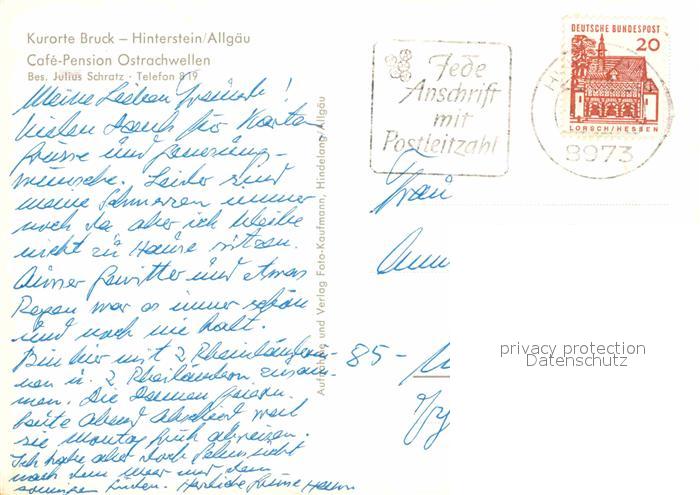 Kurorte Bruck – Hinterstein/Allgäu
Café-Pension Ostrachwellen
Bes. Julius Schratz · Telefon 819
Meine Lieben Freunde!
Vielen Dank für Karten
grüsse und Genesungs-
wünsche. Leider sind
meine Schmerzen immer
noch da aber ich bleibe
nicht zu Hause sitzen.
Ausser Gewitter und etwas
Regen war es immer schön
und noch nie kalt.
Bin hier mit 2 Rheinländerin-
nen u. 2 Rheinländern zusam-
men. Die Damen feiern
heute Abend Abschied weil
sie Montag früh abreisen.
Ich habe aber doch Sehnsucht
nach dem Meer und dem
sonnigen Süden. Herzliche Grüsse
Aufnahme und Verlag Foto-Kaufmann, Hindelang/Allgäu
Jede
Anschrift
mit
Postleitzahl
DEUTSCHE BUNDESPOST
20
LORSCH/HESSEN
8973
Frau
85 -
privacy protection
Datenschutz